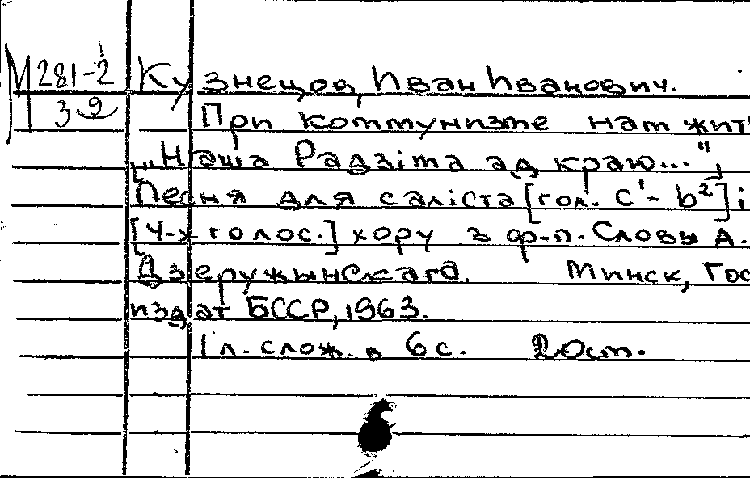 М 281-2
39
Кузнецов, Иван Иванович.
При коммунизме нам жит
"Наша Радзіма ад краю...",
Песня для саліста [гол. c¹- b²] і
[4-х голос.] хору з ф-п. Словы А.
Дзеружынскага. Минск, Гос
издат БССР, 1963.
1 л. слож. в 6 с. 20 см.